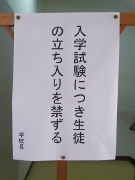 入学試験につき生徒
の立ち入りを禁ずる
学校長